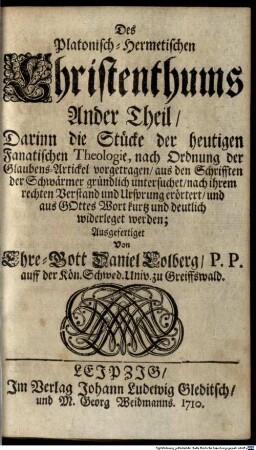 Des
Platonisch-Hermetischen
Christenthums
Ander Theil/
Darinn die Stücke der heutigen
Fanatischen Theologie, nach Ordnung der
Glaubens-Artickel vorgetragen/ aus den Schrifften
der Schwärmer gründlich untersuchet/ nach ihrem
rechten Verstand und Ursprung erörtert/ und
aus GOttes Wort kurtz und deutlich
widerleget werden;
Ausgefertiget
Von
Ehre-Gott Daniel Colberg/ P. P.
auff der Kön. Schwed. Univ. zu Greiffswald.
LEIPZIG/
Im Verlag Johann Ludewig Gleditsch/
und M. Georg Weidmanns. 1710.